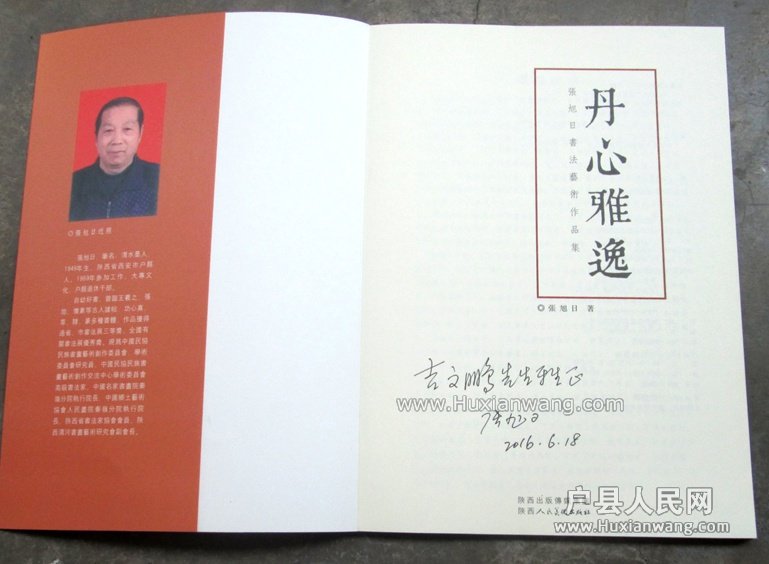 ◎張旭日近照
張旭日，筆名：渭水墨人，
1949年生，陝西省西安市户縣
人，1969年參加工作，大專文
化，户縣退休干部。
自幼好書，曾臨王羲之、張
旭、懷素等古人諸帖，功心真、
草、隸、篆多種書體，作品獲得
過省、市書法展三等獎、全國有
關書法展優秀獎。現爲中國民協
民族書畫藝術創作委員會、學術
委員會研究員、中國民協民族書
畫藝術創作交流中心學術委員會
高級書法家、中國名家書畫院秦
嶺分院執行院長、中國鄉土藝術
協會人民畫院秦嶺分院執行院
長、陝西省書法家協會會員、陝
西渭河書畫藝術研究會副會長。
丹心雅逸
張旭日書法藝術作品集
◎張旭日 著
吉文鵬先生雅正
www.Huxianwang.com
张旭日
2016.6.18
陝西出版傳媒集團
陝西人民美術出版社
户县人民网
www.Huxianwang.com